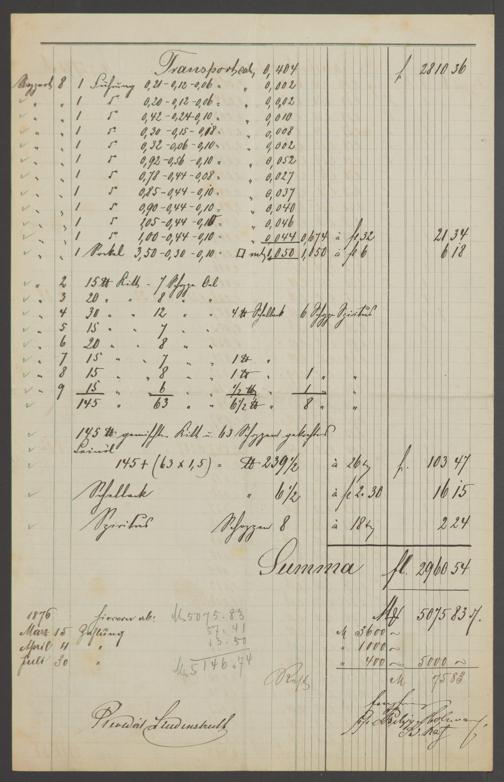 Transport 0,404 f 2810 36
8 1 0,21-0,12-0,06 " 0,002
" " 1 " 0,20-0,12-0,06 " 0,002
" " 1 " 0,42-0,24-0,10 " 0,010
" " 1 " 0,30-0,15-0,18 " 0,008
" " 1 " 0,32-0,06-0,10 " 0,002
" " 1 " 0,92-0,56-0,10 " 0,052
" " 1 " 0,78-0,44-0,08 " 0,027
" " 1 " 0,85-0,44-0,10 " 0,037
" " 1 " 0,90-0,44-0,10 " 0,040
" " 1 " 1,05-0,44-0,10 " 0,046
" " 1 " 1,00-0,44-0,10 " 0,044 0,674 à f 0,32 21 34
" " 1 Sockel 3,50-0,30-0,10 1,050 1,050 à f 6 6 18
" 2 15 ℔ Kitt - 7 Schopp Oel
" 3 20 " " 8 " "
" 4 30 " " 12 " " 4 ℔ Schellack 6 Schopp Spiritus
" 5 15 " " 7 " "
" 6 20 " " 8 " "
" 7 15 " " 7 " " 1 ℔ "
" 8 15 " " 8 " " 1 ℔ " 1 " "
" 9 15 " 6 " 1/2 ℔ " 1 " "
145 " 63 " 6 1/2 ℔ 8 " "
145 ℔ Kitt u. 63 Schoppen gekochtes
Leinöl
145 + (63 x 1,5) = ℔ 239 1/2 à 26 f. 103 47
Schellack " 6 1/2 à f 2.30 16 15
Spiritus Schoppen 8 à 18 2 24
Summa fl. 2960 54
M 5075 83
1876 hiervon ab: M 5075.83
März 15 Zahlung 57.41 M 3600 ~
April 4 " 13.50 " 1000 ~
Juli 30 " " 400 ~ 5000 ~
M 5146.74 M 75 83